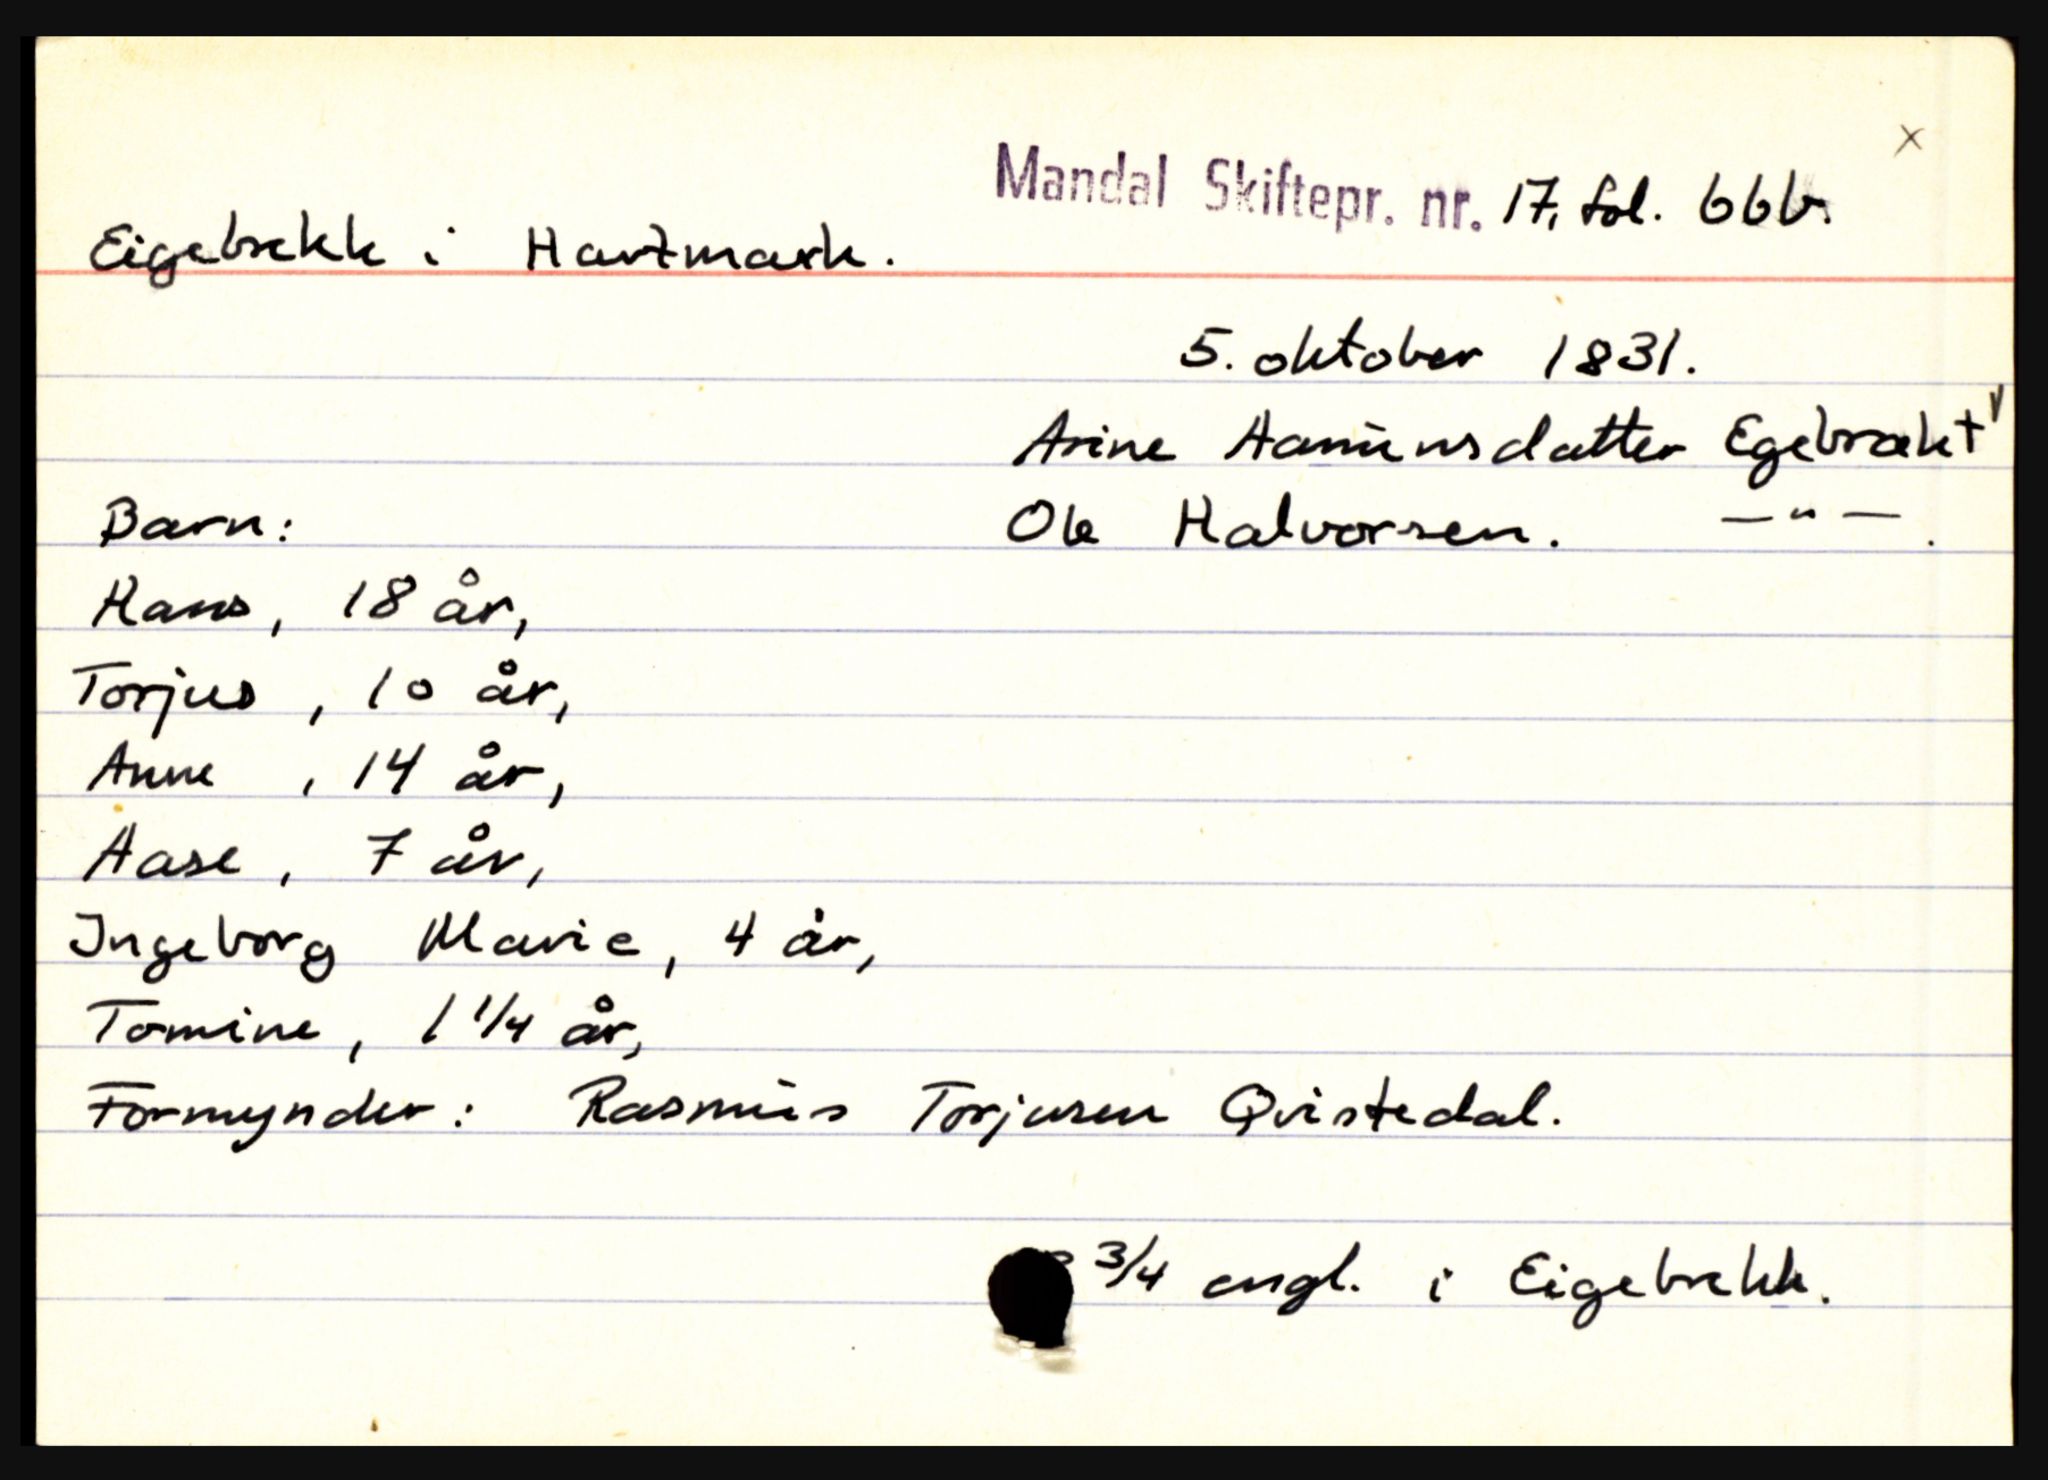 x
Mandal Skiftepr. nr. 17, fol. 66b.
Eigebrekk i Hartmark.
5. oktober 1831.
Arine Aamunsdatter Egebrækt
Barn:
Ole Halvorsen. — " — .
Hans, 18 år,
Torjus, 10 år,
Anne, 14 år,
Aase, 7 år,
Ingeborg Marie, 4 år,
Tomine, 1 1/4 år,
Formynder: Rasmus Torjusen Qvistedal.
3/4 engl. i Eigebrekk.